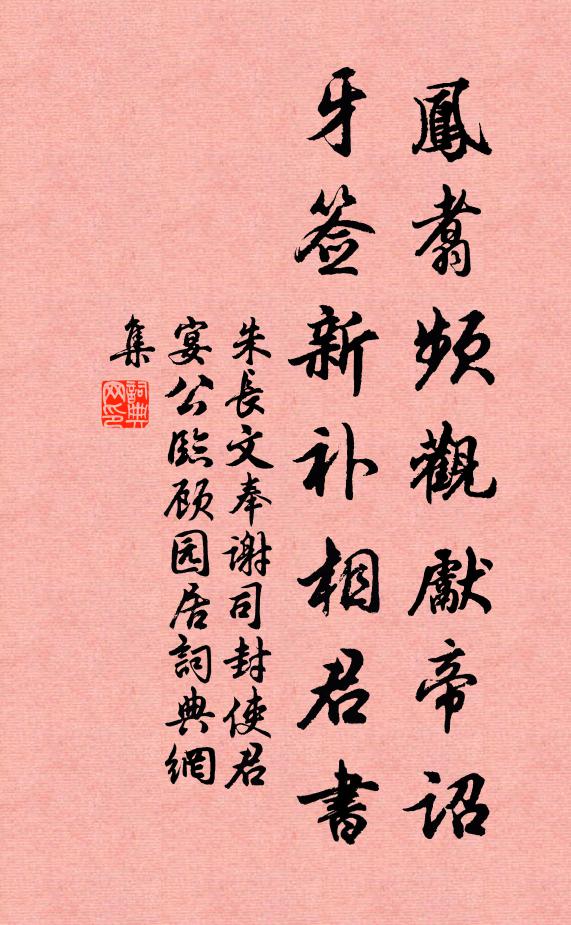 鳳翥頻觀獻帝詔
牙签新补相君書
朱長文奉谢司封使君
宴公臨顾园居詞典網
集
詞典网印